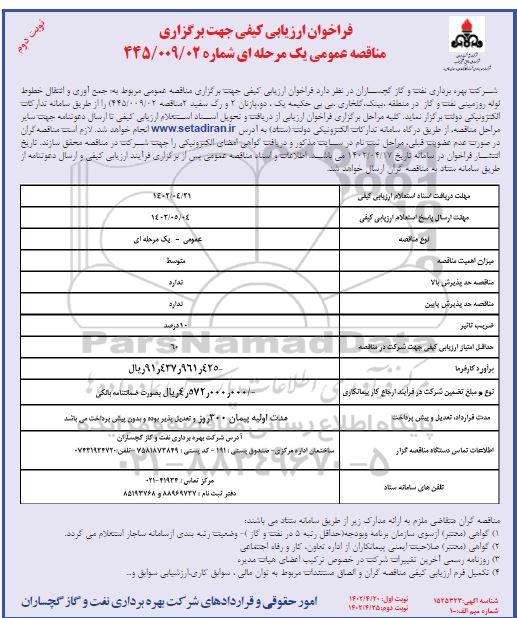 نوبت دوم
فراخوان ارزیابی کیفی جهت برگزاری
مناقصه عمومی یک مرحله ای شماره ۴۴۵/۰۰۹/۰۲
شرکت بهره برداری نفت و گاز گچساران در نظر دارد فراخوان ارزیابی کیفی جهت برگزاری مناقصه عمومی مربوط به جمع آوری و انتقال خطوط
لوله روزمینی نفت و گاز در منطقه ،بینک،گلخاری ،بی بی حکیمه یک ، دو،پازنان ۲ و رگ سفید ۲مناقصه (۴۴۵/۰۰۹/۰۲) را از طریق سامانه تدارکات
الکترونیکی دولت برگزار نماید. کلیه مراحل برگزاری فراخوان ارزیابی از دریافت و تحویل اسناد استعلام ارزیابی کیفی تا ارسال دعوتنامه جهت سایر
مراحل مناقصه، از طریق درگاه سامانه تدارکات الکترونیکی دولت (ستاد) به آدرس www.setadiran.ir انجام خواهد شد. لازم است مناقصه گران
در صورت عدم عضویت قبلی، مراحل ثبت نام در سایت مذکور و دریافت گواهی امضای الکترونیکی را جهت شرکت در مناقصه محقق سازند. تاریخ
انتشار فراخوان در سامانه تاریخ ۱۴۰۲/۰۴/۱۷ می باشد. اطلاعات و اسناد مناقصه عمومی پس از برگزاری فرآیند ارزیابی کیفی و ارسال دعوتنامه از
طریق سامانه ستاد به مناقصه گران ارسال خواهد شد.
مهلت دریافت اسناد استعلام ارزیابی کیفی ۱۴۰۲/۰۴/۲۱
مهلت ارسال پاسخ استعلام ارزیابی کیفی ۱۴۰۲/۰۵/۰۴
نوع مناقصه عمومی - یک مرحله ای
میزان اهمیت مناقصه متوسط
مناقصه حد پذیرش بالا ندارد
مناقصه حد پذیرش پایین ندارد
ضریب تاثیر ۱۰درصد
حداقل امتیاز ارزیابی کیفی جهت شرکت در مناقصه ۶۰
برآورد کارفرما ۹۱ر۴۳۷ر۹۶۱ر۴۲۵-ریال
نوع و مبلغ تضمین شرکت در فرآیند ارجاع کار پیمانکاری ۴ر۵۷۲ر۰۰۰ر۰۰۰/-ریال بصورت ضمانتنامه بانکی
مدت قرارداد، تعدیل و پیش پرداخت مدت اولیه پیمان ۳۰۰روز و تعدیل پذیر بوده و بدون پیش پرداخت می باشد
اطلاعات تماس دستگاه مناقصه گزار آدرس شرکت بهره برداری نفت و گاز گچساران
ساختمان اداره مرکزی- صندوق پستی : ۱۹۱ - کد پستی : ۷۵۸۱۸۷۳۸۴۹ -تلفن:۰۷۴۳۱۹۲۴۷۲۰
تلفن های سامانه ستاد مرکز تماس : ۴۱۹۳۴-۰۲۱
دفتر ثبت نام : ۸۸۹۶۹۷۳۷ و ۸۵۱۹۳۷۶۸
ParsNamadData
پایگاه اطلاع رسانی
۰۲۱-۸۸۳۴۹۶۷۰-۵
مناقصه گران متقاضی ملزم به ارائه مدارک زیر از طریق سامانه ستاد می باشند:
۱) گواهی (معتبر) ازسوی سازمان برنامه وبودجه(حداقل رتبه ۵ در نفت و گاز )- وضعیت رتبه بندی ازسامانه ساجار استعلام می گردد.
۲) گواهی (معتبر) صلاحیت ایمنی پیمانکاران از اداره تعاون، کار و رفاه اجتماعی
۳) روزنامه رسمی آگهی تغییرات شرکت در خصوص ترکیب اعضای هیات مدیره
۴) تکمیل فرم ارزیابی کیفی مناقصه گران و الصاق مستندات مربوط به توان مالی ، سوابق کاری،ارزشیابی سوابق و..
شناسه آگهی:۱۵۲۵۳۲۳
شماره میم الف:۱۰
نوبت اول: ۱۴۰۲/۴/۲۰
نوبت دوم:۱۴۰۲/۴/۲۵
امور حقوقی و قراردادهای شرکت بهره برداری نفت و گاز گچساران